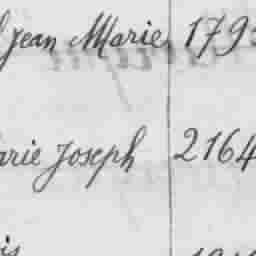 Jean Marie 179
arie Joseph 2164
is